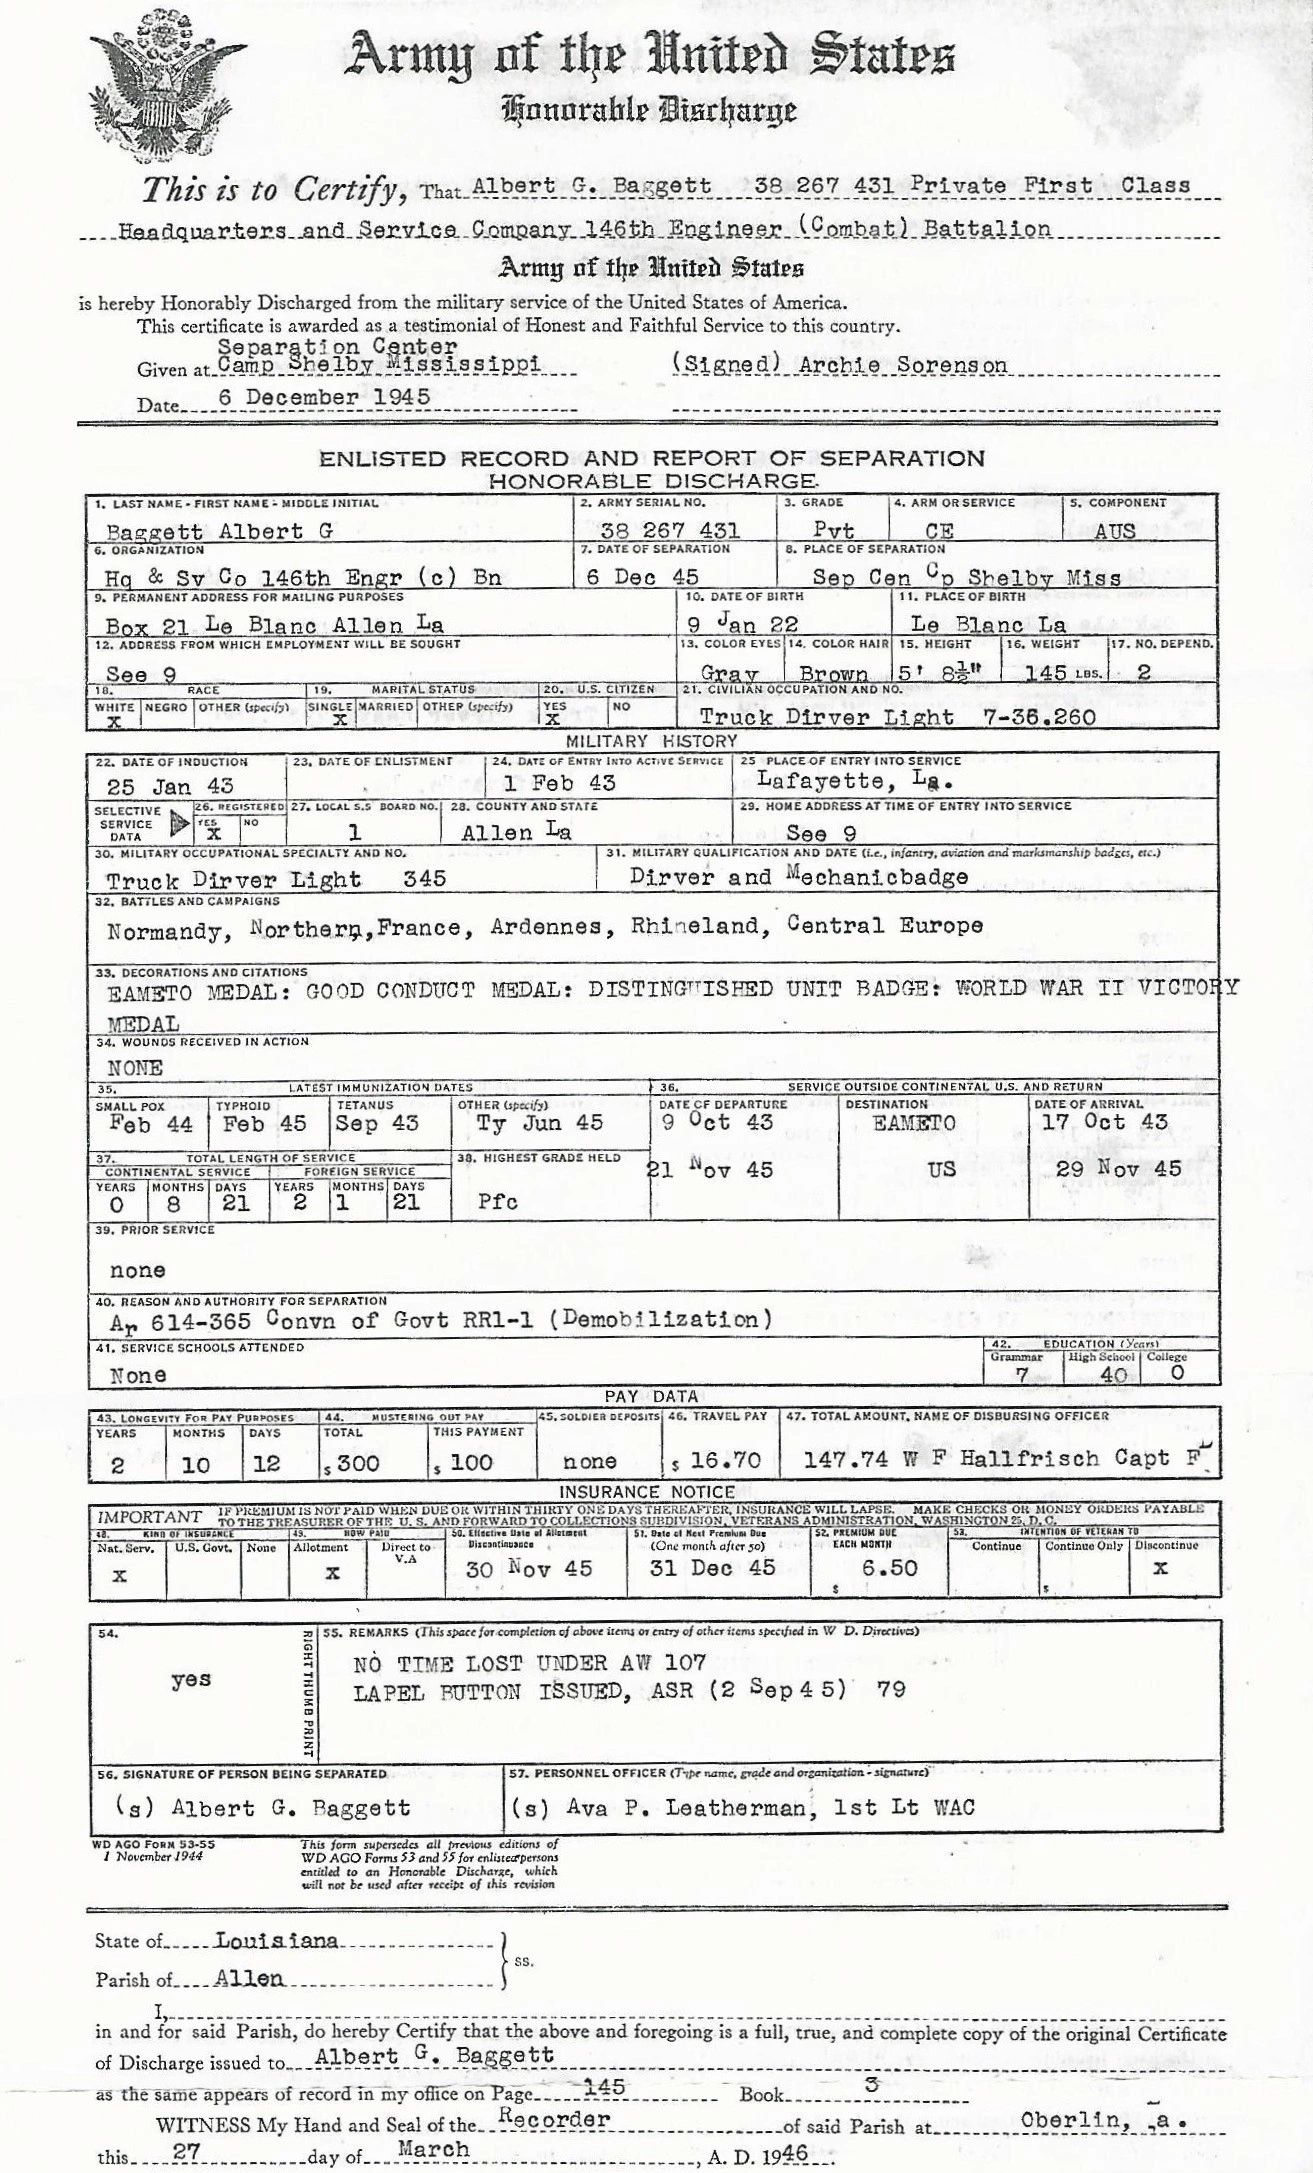 Army of the United States
Honorable Discharge
This is to Certify, That Albert G. Baggett 38 267 431 Private First Class
Headquarters and Service Company 146th Engineer (Combat) Battalion
Army of the United States
is hereby Honorably Discharged from the military service of the United States of America.
This certificate is awarded as a testimonial of Honest and Faithful Service to this country.
Separation Center
Given at Camp Shelby Mississippi (Signed) Archie Sorenson
Date 6 December 1945
ENLISTED RECORD AND REPORT OF SEPARATION
HONORABLE DISCHARGE
1. LAST NAME - FIRST NAME - MIDDLE INITIAL 2. ARMY SERIAL NO. 3. GRADE 4. ARM OR SERVICE 5. COMPONENT
Baggett Albert G 38 267 431 Pvt CE AUS
6. ORGANIZATION 7. DATE OF SEPARATION 8. PLACE OF SEPARATION
Hq & Sv Co 146th Engr (c) Bn 6 Dec 45 Sep Cen Cp Shelby Miss
9. PERMANENT ADDRESS FOR MAILING PURPOSES 10. DATE OF BIRTH 11. PLACE OF BIRTH
Box 21 Le Blanc Allen La 9 Jan 22 Le Blanc La
12. ADDRESS FROM WHICH EMPLOYMENT WILL BE SOUGHT 13. COLOR EYES 14. COLOR HAIR 15. HEIGHT 16. WEIGHT 17. NO. DEPEND.
See 9 Gray Brown 5' 8½" 145 LBS. 2
18. RACE 19. MARITAL STATUS 20. U.S. CITIZEN 21. CIVILIAN OCCUPATION AND NO.
WHITE NEGRO OTHER (specify) SINGLE MARRIED OTHER (specify) YES NO
X X X Truck Dirver Light 7-36.260
MILITARY HISTORY
22. DATE OF INDUCTION 23. DATE OF ENLISTMENT 24. DATE OF ENTRY INTO ACTIVE SERVICE 25 PLACE OF ENTRY INTO SERVICE
25 Jan 43 1 Feb 43 Lafayette, La.
SELECTIVE SERVICE DATA 26. REGISTERED 27. LOCAL S.S BOARD NO. 28. COUNTY AND STATE 29. HOME ADDRESS AT TIME OF ENTRY INTO SERVICE
YES NO
X 1 Allen La See 9
30. MILITARY OCCUPATIONAL SPECIALTY AND NO. 31. MILITARY QUALIFICATION AND DATE (i.e., infantry, aviation and marksmanship badges, etc.)
Truck Dirver Light 345 Dirver and Mechanicbadge
32. BATTLES AND CAMPAIGNS
Normandy, Northern,France, Ardennes, Rhineland, Central Europe
33. DECORATIONS AND CITATIONS
EAMETO MEDAL: GOOD CONDUCT MEDAL: DISTINGUISHED UNIT BADGE: WORLD WAR II VICTORY
MEDAL
34. WOUNDS RECEIVED IN ACTION
NONE
35. LATEST IMMUNIZATION DATES 36. SERVICE OUTSIDE CONTINENTAL U.S. AND RETURN
SMALL POX TYPHOID TETANUS OTHER (specify) DATE OF DEPARTURE DESTINATION DATE OF ARRIVAL
Feb 44 Feb 45 Sep 43 Ty Jun 45 9 Oct 43 EAMETO 17 Oct 43
37. TOTAL LENGTH OF SERVICE 38. HIGHEST GRADE HELD
CONTINENTAL SERVICE FOREIGN SERVICE 21 Nov 45 US 29 Nov 45
YEARS MONTHS DAYS YEARS MONTHS DAYS
0 8 21 2 1 21 Pfc
39. PRIOR SERVICE
none
40. REASON AND AUTHORITY FOR SEPARATION
Ar 614-365 Convn of Govt RR1-1 (Demobilization)
41. SERVICE SCHOOLS ATTENDED 42. EDUCATION (Years)
Grammar High School College
None 7 40 0
PAY DATA
43. LONGEVITY FOR PAY PURPOSES 44. MUSTERING OUT PAY 45. SOLDIER DEPOSITS 46. TRAVEL PAY 47. TOTAL AMOUNT, NAME OF DISBURSING OFFICER
YEARS MONTHS DAYS TOTAL THIS PAYMENT
2 10 12 $ 300 $ 100 none $ 16.70 147.74 W F Hallfrisch Capt F
INSURANCE NOTICE
IMPORTANT IF PREMIUM IS NOT PAID WHEN DUE OR WITHIN THIRTY ONE DAYS THEREAFTER, INSURANCE WILL LAPSE. MAKE CHECKS OR MONEY ORDERS PAYABLE
TO THE TREASURER OF THE U. S. AND FORWARD TO COLLECTIONS SUBDIVISION, VETERANS ADMINISTRATION, WASHINGTON 25, D. C.
48. KIND OF INSURANCE 49. HOW PAID 50. Effective Date of Allotment Discontinuance 51. Date of Next Premium Due (One month after 50) 52. PREMIUM DUE EACH MONTH 53. INTENTION OF VETERAN TO
Nat. Serv. U.S. Govt. None Allotment Direct to V.A Continue Continue Only Discontinue
X X 30 Nov 45 31 Dec 45 $ 6.50 $ X
54. RIGHT THUMB PRINT 55. REMARKS (This space for completion of above items or entry of other items specified in W D. Directives)
NO TIME LOST UNDER AW 107
yes
LAPEL BUTTON ISSUED, ASR (2 Sep 4 5) 79
56. SIGNATURE OF PERSON BEING SEPARATED 57. PERSONNEL OFFICER (Type name, grade and organization - signature)
(s) Albert G. Baggett (s) Ava P. Leatherman, 1st Lt WAC
WD AGO FORM 53-55 This form supersedes all previous editions of
1 November 1944 WD AGO Forms 53 and 55 for enlisted persons
entitled to an Honorable Discharge, which
will not be used after receipt of this revision
State of Louisiana
ss.
Parish of Allen
I,
in and for said Parish, do hereby Certify that the above and foregoing is a full, true, and complete copy of the original Certificate
of Discharge issued to Albert G. Baggett
as the same appears of record in my office on Page 145 Book 3
WITNESS My Hand and Seal of the Recorder of said Parish at Oberlin, a.
this 27 day of March, A. D. 1946.